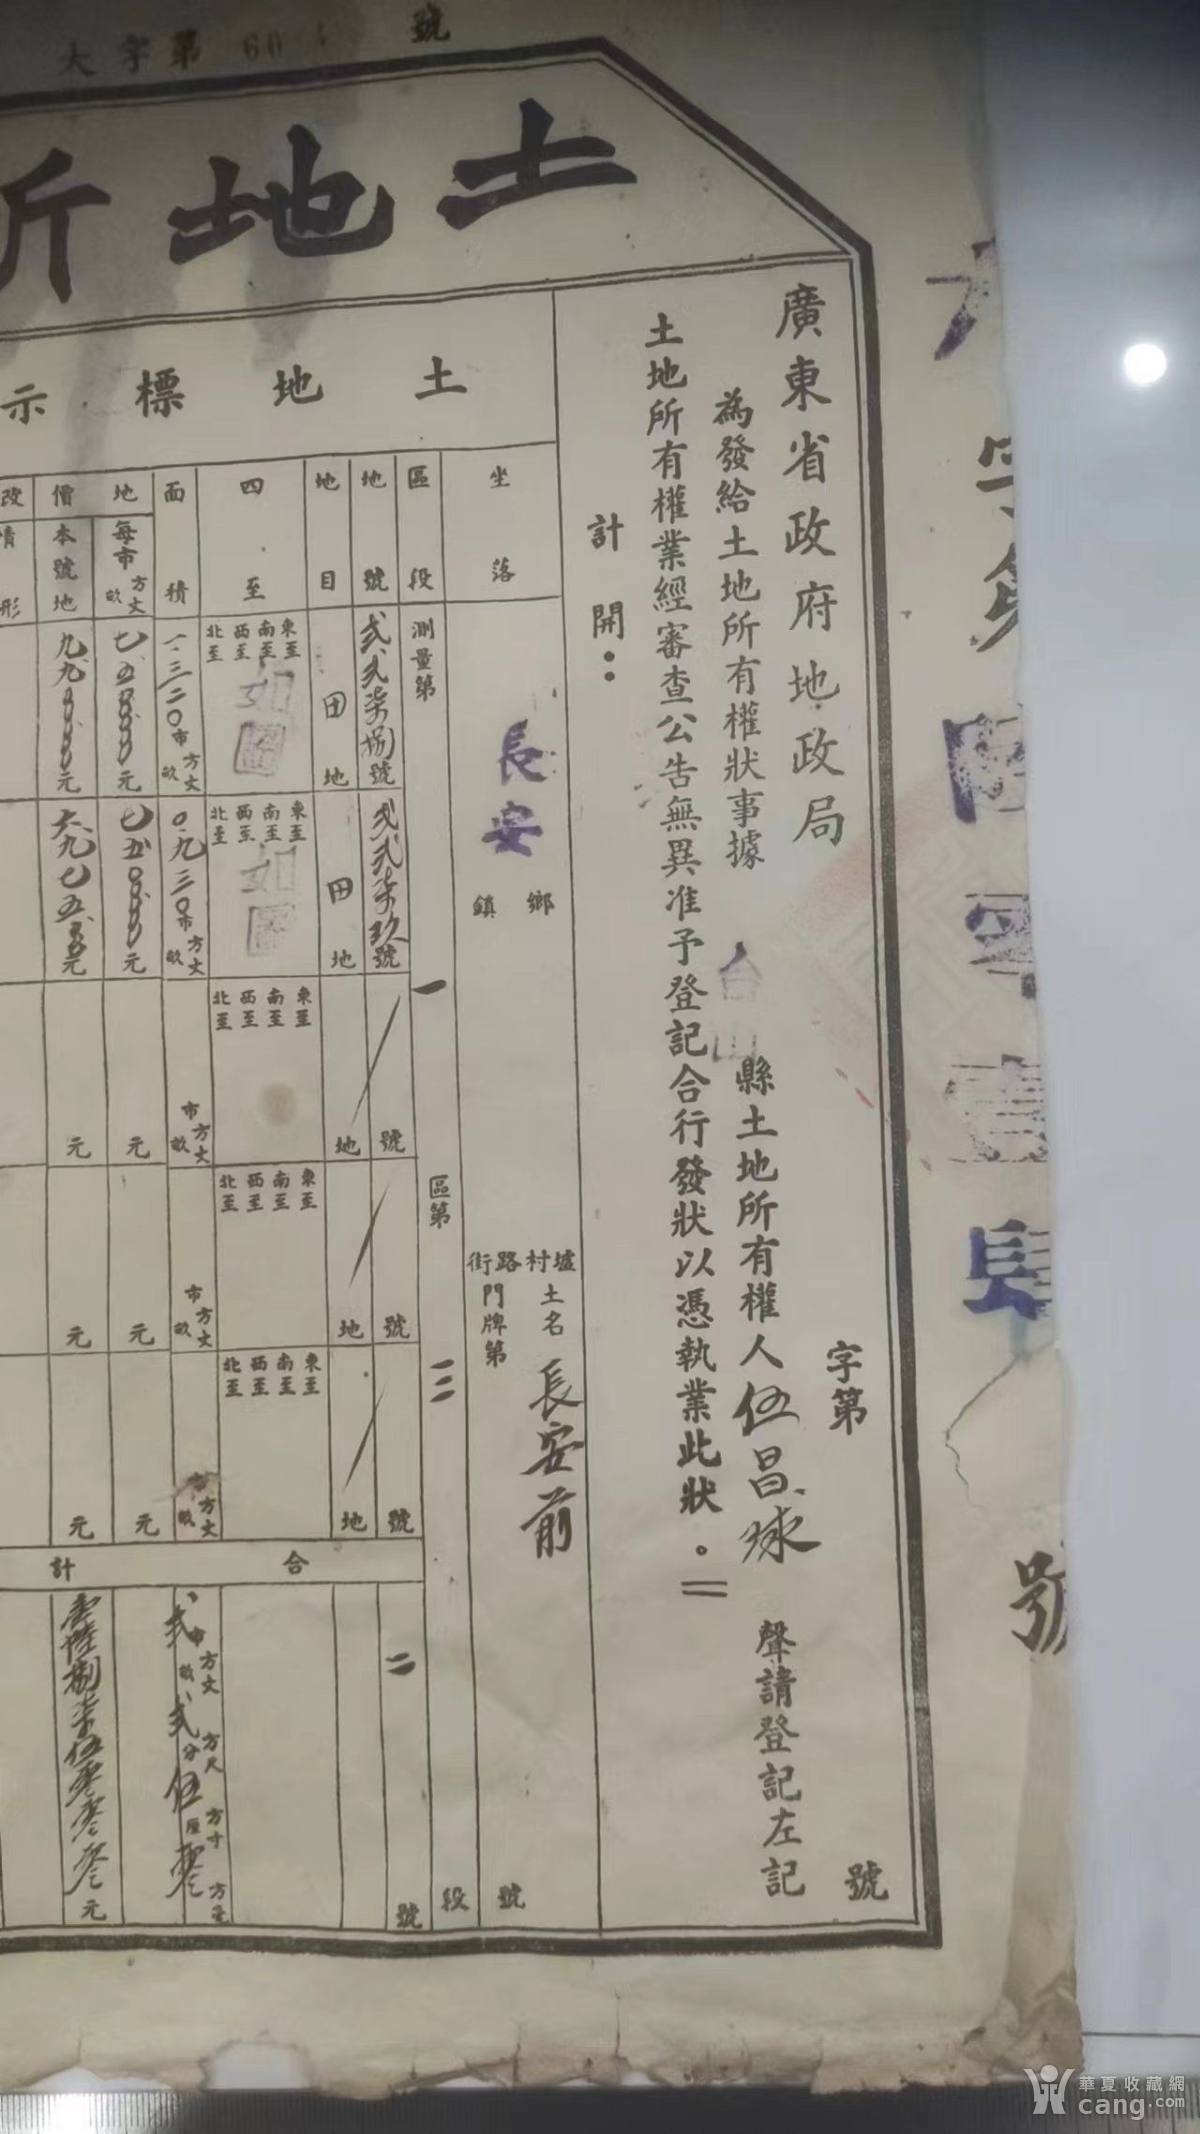 大字第 60 號
土地所
廣東省政府地政局
字第 號
為發給土地所有權狀事據 台山 縣土地所有權人伍昌球 聲請登記左記
土地所有權業經審查公告無異准予登記合行發狀以憑執業此狀。
計開：
土地標示
坐落
長安 鄉鎮
墟村路街
土名 長安前
門牌第 號
區段
測量第 一 區第 三 段
地號
弍弍柒捌號
弍弍柒玖號
號
號
號
地目
田地
田地
地
地
地
四至
東至 南至 西至 北至
如圖
東至 南至 西至 北至
如圖
東至 南至 西至 北至
東至 南至 西至 北至
東至 南至 西至 北至
面積
一.三二〇市方丈畝
〇.九三〇市方丈畝
市方丈畝
市方丈畝
市方丈畝
地價
每市方丈畝
元
元
元
元
元
本號地
元
元
元
元
元
改
情形
合計
二 號
弍市方丈畝弍方尺分伍方寸厘零方
陸捌柒伍零零零元
字 陸零壹 號
華夏收藏網
cang.com